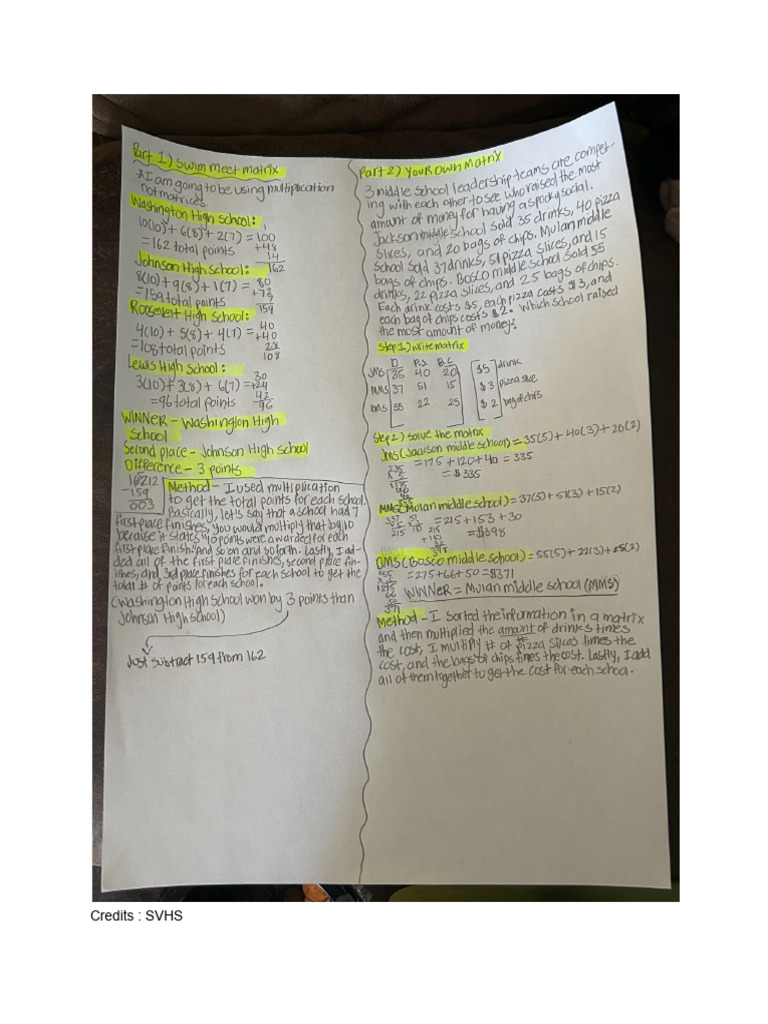 Part 1.) Swim meet matrix
*I am going to be using multiplication
not matrices.
Washington High school:
10(10) + 6(8) + 2(7) = 100
+48
= 162 total points
14
162
Johnson High School:
8(10) + 9(8) + 1(7) = 80
+72
= 159 total points
7
159
Roosevelt High School:
4(10) + 5(8) + 4(7) = 40
+40
= 108 total points
28
108
Lewis High School:
30
3(10) + 3(8) + 6(7) = +24
42
= 96 total points
96
WINNER - Washington High
School
Second place - Johnson High School
Difference - 3 points
162
- 159
003
Method - I used multiplication
to get the total points for each school.
Basically, let's say that a school had 7
first place finishes, you would multiply that by 10
because it states "10 points were awarded for each
first place finish." And so on and so forth. Lastly, I ad-
ded all of the first place finishes, second place fin-
ishes, and 3rd place finishes for each school to get the
total # of points for each school.
(Washington High School won by 3 points than
Johnson High school)
Just subtract 159 from 162
Part 2) Your Own Matrix
3 middle school leadership teams are compet-
ing with each other to see who raised the most
amount of money for having a spooky social.
Jackson middle school sold 35 drinks, 40 pizza
slices, and 20 bags of chips. Mulan middle
school sold 37 drinks, 51 pizza slices, and 15
bags of chips. Bosco middle school sold 55
drinks, 22 pizza slices, and 25 bags of chips.
Each drink costs $5, each pizza costs $3, and
each bag of chips costs $2. Which school raised
the most amount of money?
Step 1.) write matrix
D P.S. B.C
JMS 35 40 20
$5 drink
MMS 37 51 15
$3 pizza slice
BMS 55 22 25
$2 bag of chips
Step 2.) solve the matrix
JMS (Jackson middle school) = 35(5) + 40(3) + 20(2)
= 175 + 120 + 40 = 335
= $335
MMS (Mulan middle school) = 37(5) + 51(3) + 15(2)
= 215 + 153 + 30
= $398
BMS (Bosco middle school) = 55(5) + 22(3) + 25(2)
= 275 + 66 + 50 = $371
WINNER = Mulan middle school (MMS)
Method - I sorted the information in a matrix
and then multiplied the amount of drinks times
the cost, I multiply # of pizza slices times the
cost, and the bags of chips times the cost. Lastly, I add
all of them together to get the cost for each school.
Credits : SVHS